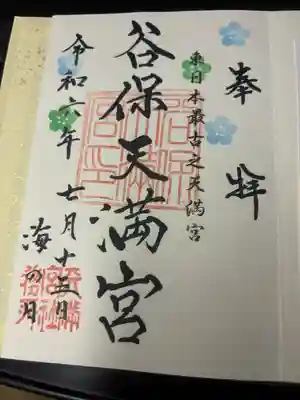 奉拝
東日本最古之天満宮
谷保天満宮
令和六年七月十五日
海の日